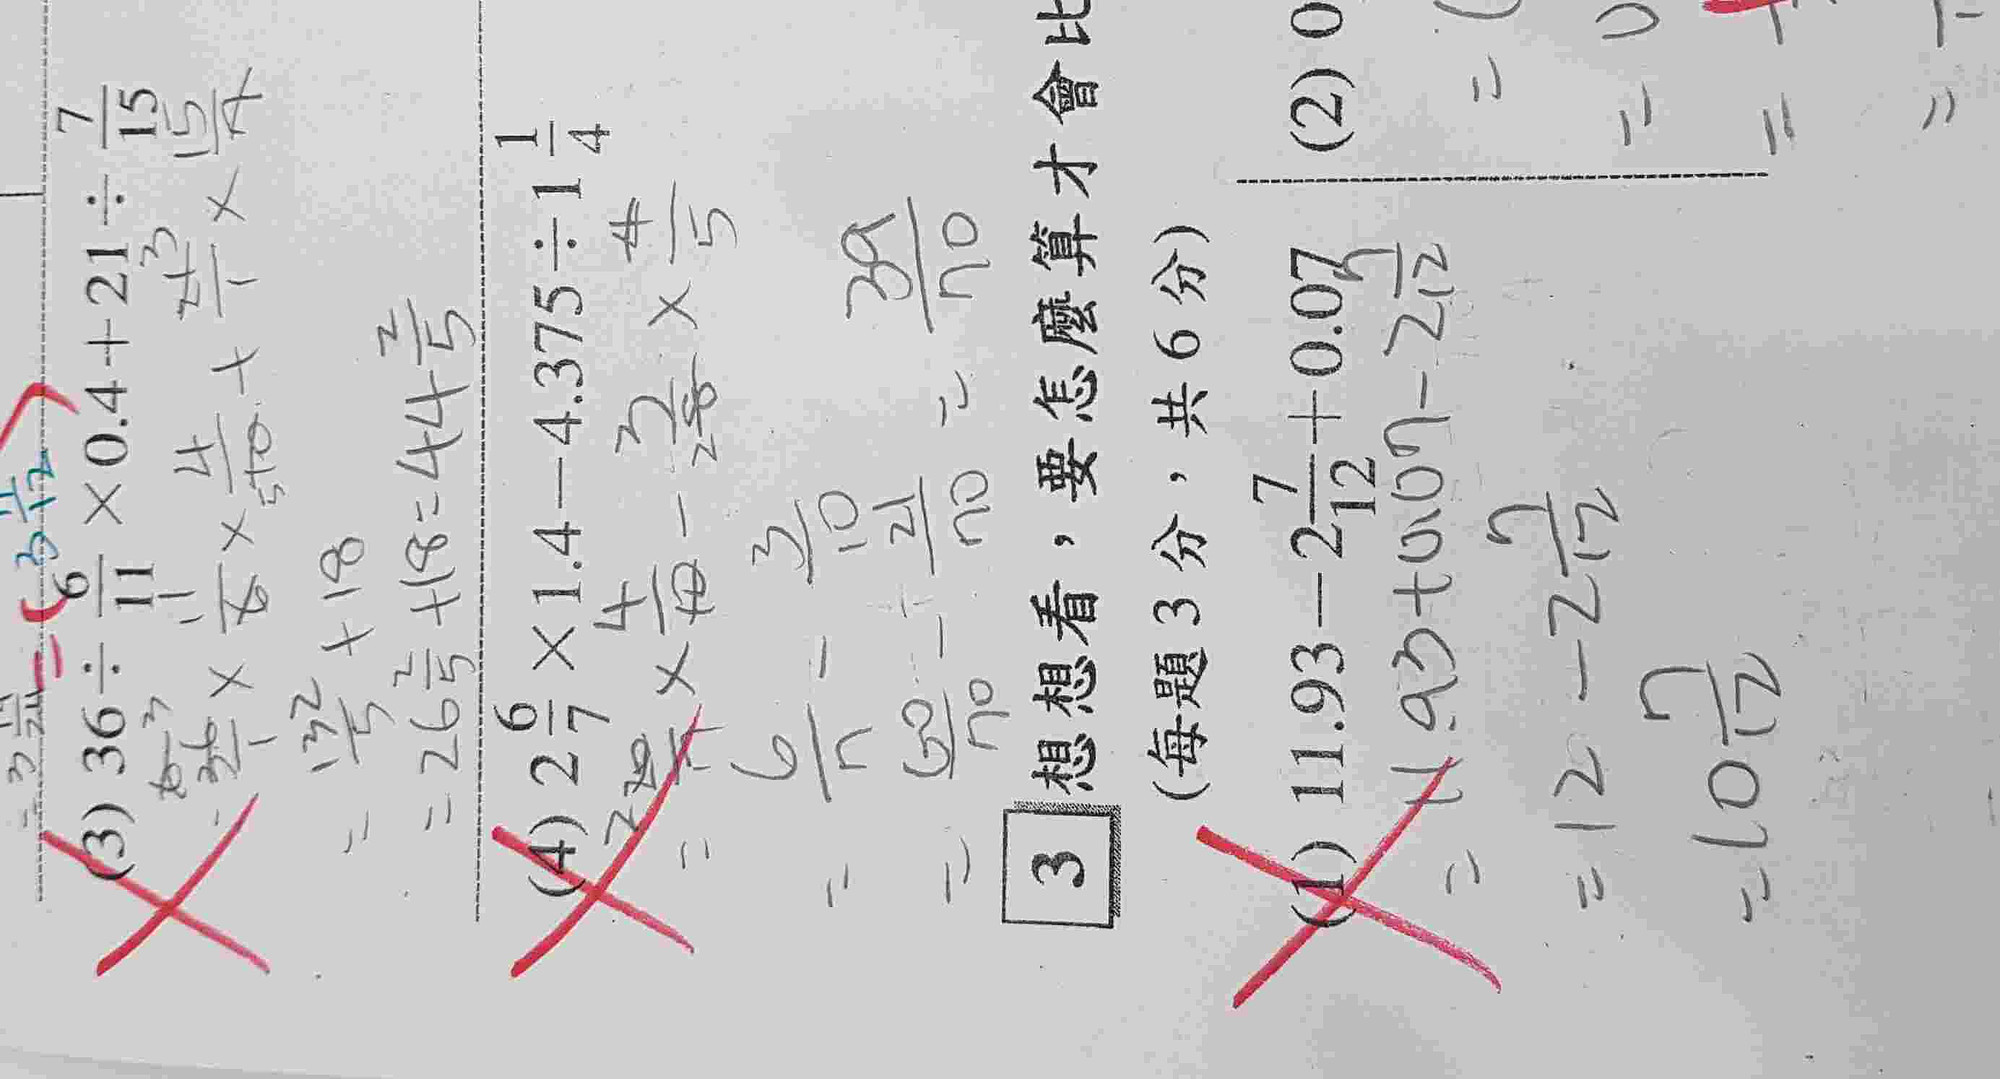 (3) 36÷6/11×0.4+21÷7/15
36/1×11/6×4/10+21/1×15/7
=132/5+18
=26 2/5+18=44 2/5
(4) 2 6/7×1.4−4.375÷1 1/4
=6/7−3/10
=60/70−21/70=39/70
3 想想看，要怎麼算才會比
(每題3分，共6分)
(1) 11.93−2 7/12+0.07
=11.93+0.07−2 7/12
=12−2 7/12
=10 7/12
(2) 0